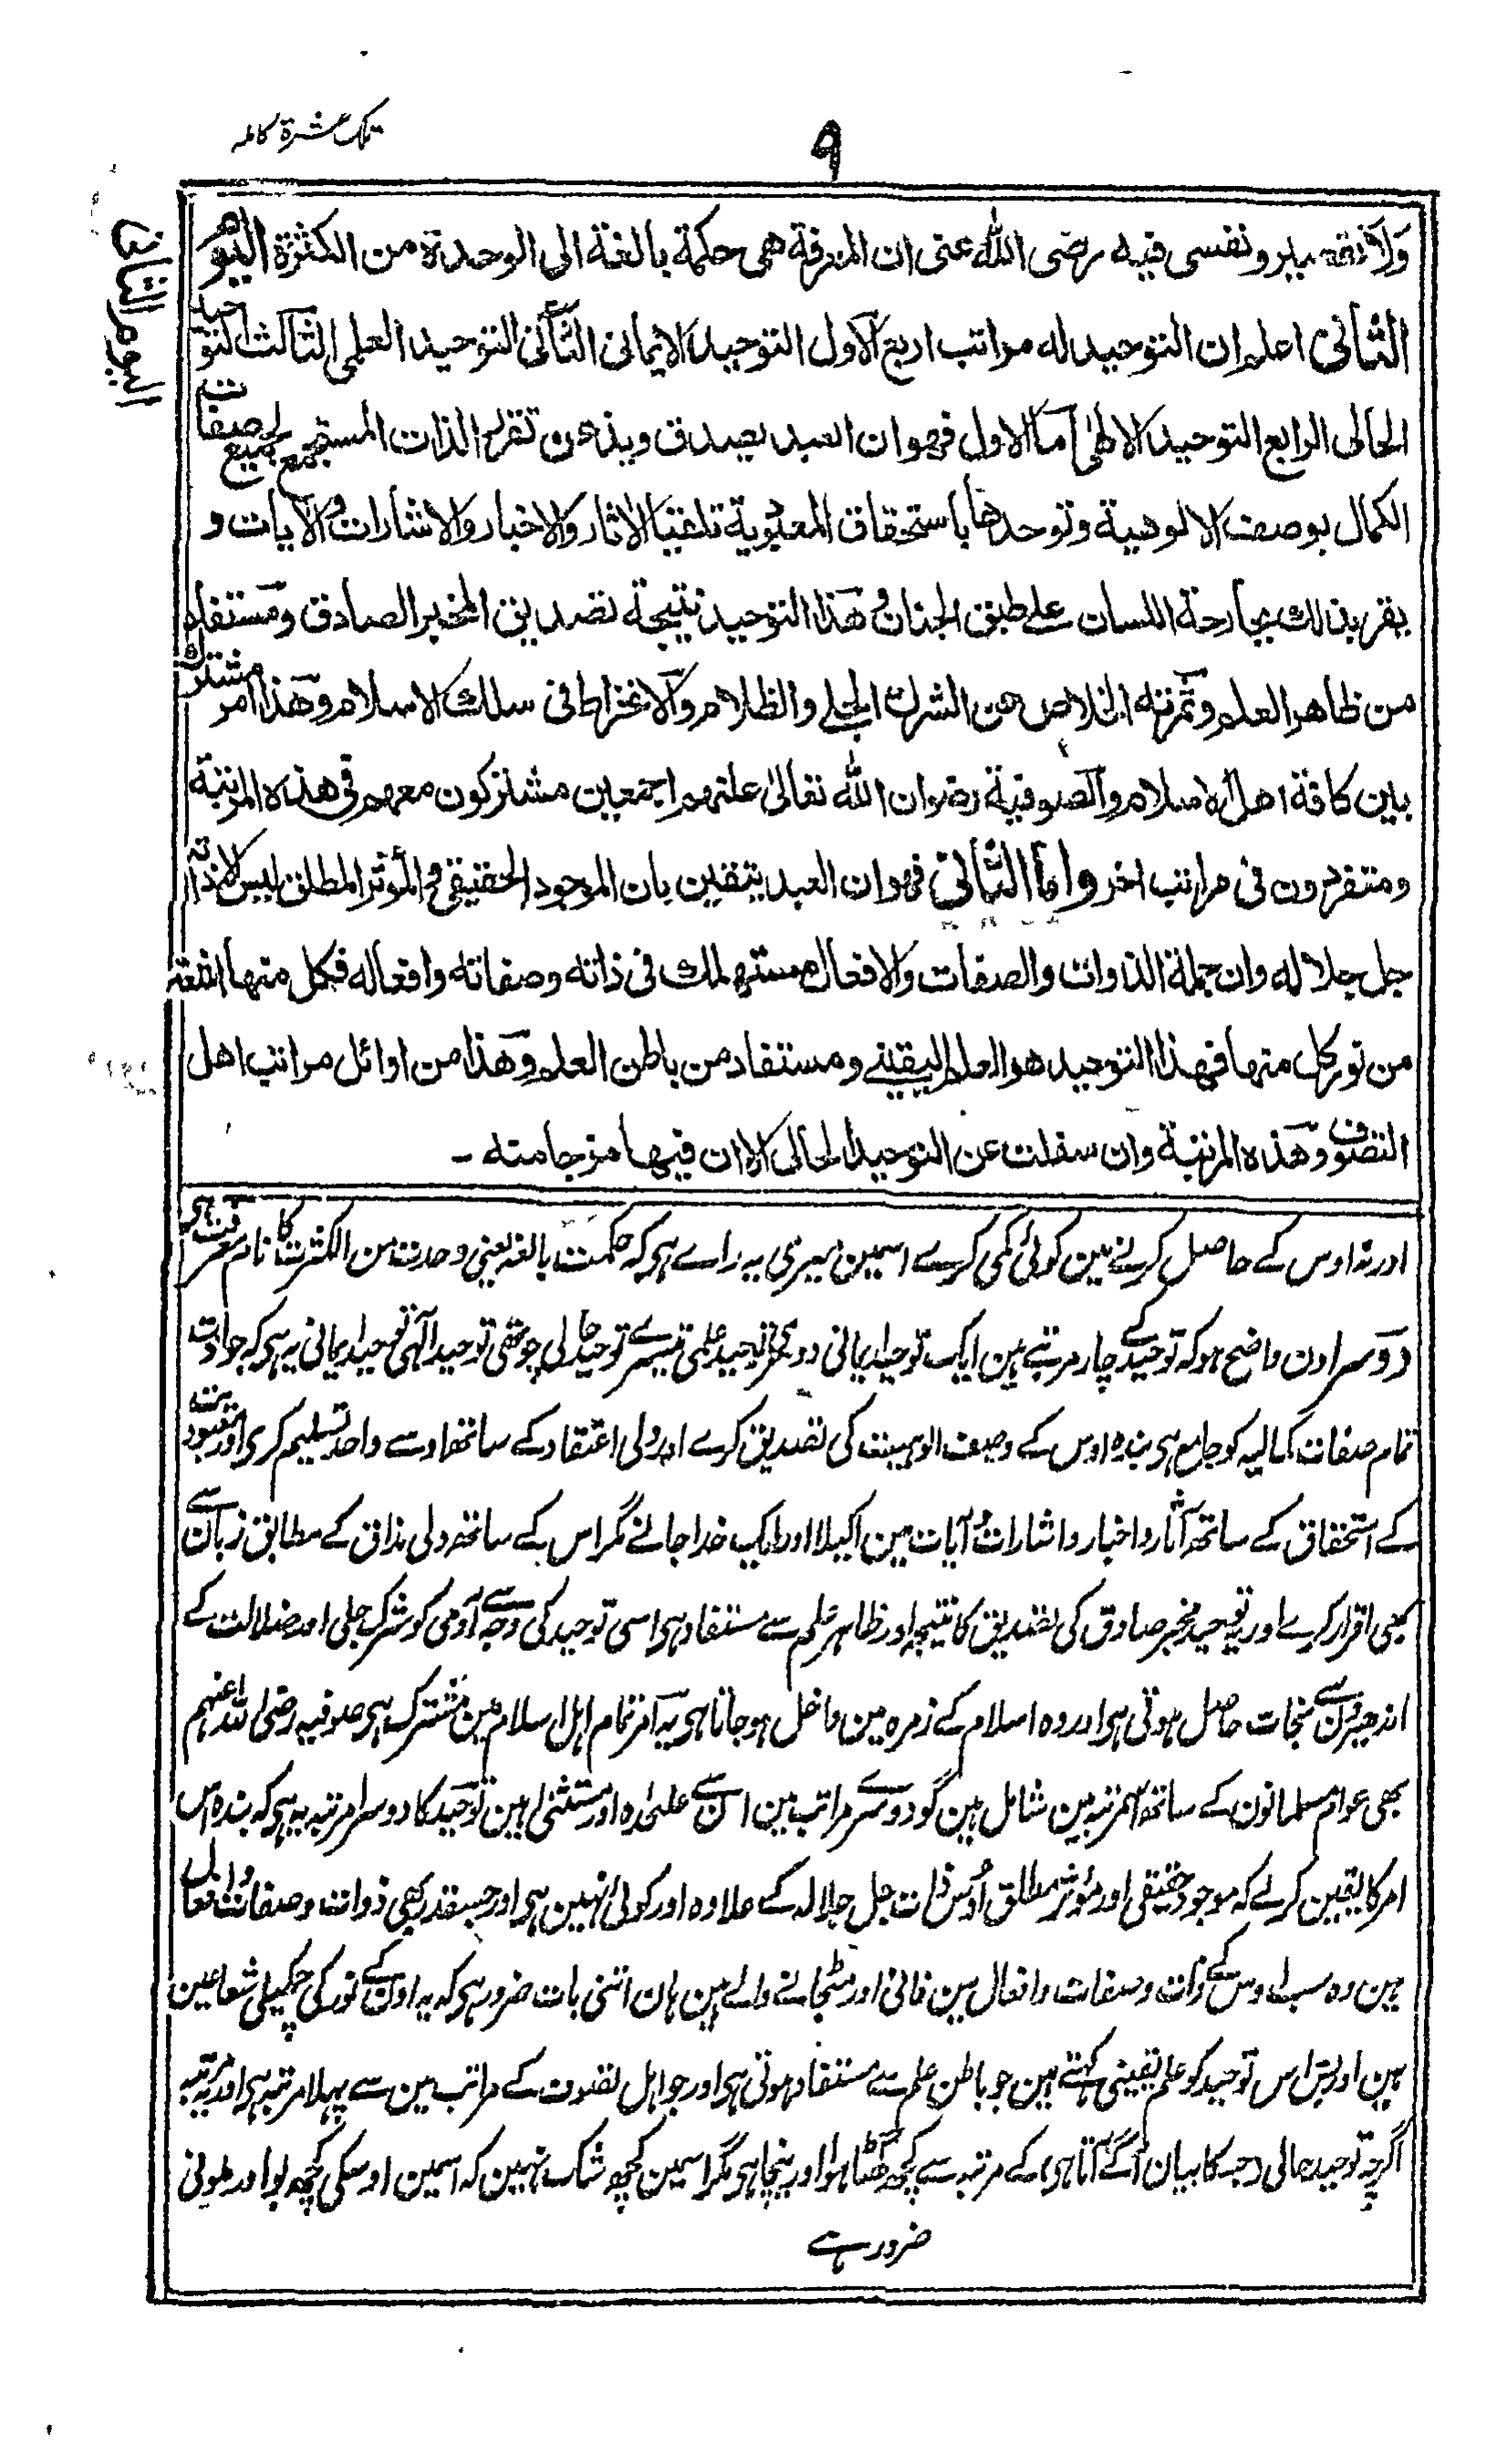 تلک عشرة کاملہ
۹
ولا تقصير ونفسى فيه رضى الله عنى ان المعرفة هى حكمة بالغة الى الوحدة من الكثرة اليوم
اليوم الثانى
الثانى اعلم ان التوحيد له مراتب اربع الاول التوحيد الايمانى الثانى التوحيد العلمى الثالث التوحيد
الحالى الرابع التوحيد الالهى اما الاول فهو ان العبد يصدق ويذعن تقرر الذات المستجمع لجميع صفات
الكمال بوصف الالوهية وتوحدها باستحقاق المعبودية تلقيا الاثار والاخبار والاشارات والايات و
يقر بذلك بجارحة اللسان على طبق الجنان وهذا التوحيد نتيجة تصديق المخبر الصادق ومستفاد
من ظاهر العلم وثمرته الخلاص من الشرك الجلى والظلام والانخراط فى سلك الاسلام وهذا امر مشترك
بين كافة اهل الاسلام والصوفية رضوان الله تعالى عليهم اجمعين مشتركون معهم فى هذه المرتبة
ومتفردون فى مراتب اخر واما الثانى فهو ان العبد يتيقن بان الموجود الحقيقى والمؤثر المطلق ليس الا ذاته
جل جلاله وان جملة الذوات والصفات والافعال مستهلك فى ذاته وصفاته وافعاله فكل منها اشعة
من نور كل منها فهذا التوحيد هو العلم اليقينے ومستفاد من باطن العلم وهذا من اوائل مراتب اهل
التصوف وهذه المرتبة وان سفلت عن التوحيد الحالى الا ان فيها مزجا منه ـ
اور نہ اوس کے حاصل کرنے مین کوئی کمی کرے اسمین میری یہ راے ہی کہ حکمت بالغہ یعنی وحدت من الکثرت کا نام معرفت ہی
دوسرا دن واضح ہو کہ توحید کے چار مرتبے ہین ایک توحید ایمانی دوسری توحید علمی تیسرے توحید حالی چوتھی توحید الٰہی توحید ایمانی یہ ہی کہ جو ذات
تمام صفات کمالیہ کو جامع ہی بندہ اوس کے وصف الوہیت کی تصدیق کرے اور دلی اعتقاد کے ساتھ اوسے واحد تسلیم کری اور معبودیت
کے استحقاق کے ساتھ آثار و اخبار و اشارات و آیات مین اکیلا اور ایک خدا جانے مگر اس کے ساتھ دلی مذاق کے مطابق زبان سے
بھی اقرار کرے اور یہ توحید مخبر صادق کی تصدیق کا نتیجہ اور ظاہر علم سے مستفاد ہی اسی توحید کی وجہ سے آدمی کو شرک جلی اور ضلالت کے
اندھیرون سے نجات حاصل ہوتی ہی اور وہ اسلام کے زمرہ مین داخل ہو جاتا ہی یہ امر تمام اہل اسلام مین مشترک ہی صوفیہ رضی اللہ عنہم
بھی عوام مسلمانون کے ساتھ اس مرتبہ مین شامل ہین گو دوسرے مراتب مین ان سے علٰحدہ اور مستثنٰی ہین توحید کا دوسرا مرتبہ یہ ہی کہ بندہ اس
امر کا یقین کرلے کہ موجود حقیقی اور مؤثر مطلق اُوس ذات جل جلالہ کے علاوہ اور کوئی نہین ہی اور جسقدر بھی ذوات و صفات و افعال
ہین وہ سب اوس کے ذات و صفات و افعال مین فانی اور مٹجانے والے ہین ہان اتنی بات ضرور ہی کہ یہ اون کے نور کی چمکیلی شعاعین
ہین اور بس اس توحید کو علم یقینی کہتے ہین جو باطن علم سے مستفاد ہوتی ہی اور جو اہل تصوف کے مراتب مین سے پہلا مرتبہ ہی اور یہ مرتبہ
اگرچہ توحید حالی (جسکا بیان آگے آتا ہی) کے مرتبہ سے کچھ گھٹا ہوا اور نیچا ہی مگر اسمین کچھ شک نہین کہ اسمین اوسکی کچھ بو اور ملونی
ضرور ہے